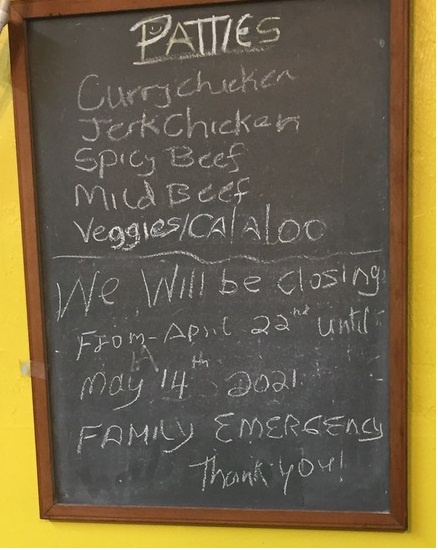 PATTIES
Curry chicken
Jerk Chicken
Spicy Beef
Mild Beef
Veggies/CAlAloo
We Will be closing
From - April 22nd until
May 14th 2021
FAMILY EMERGENCY
Thank you!